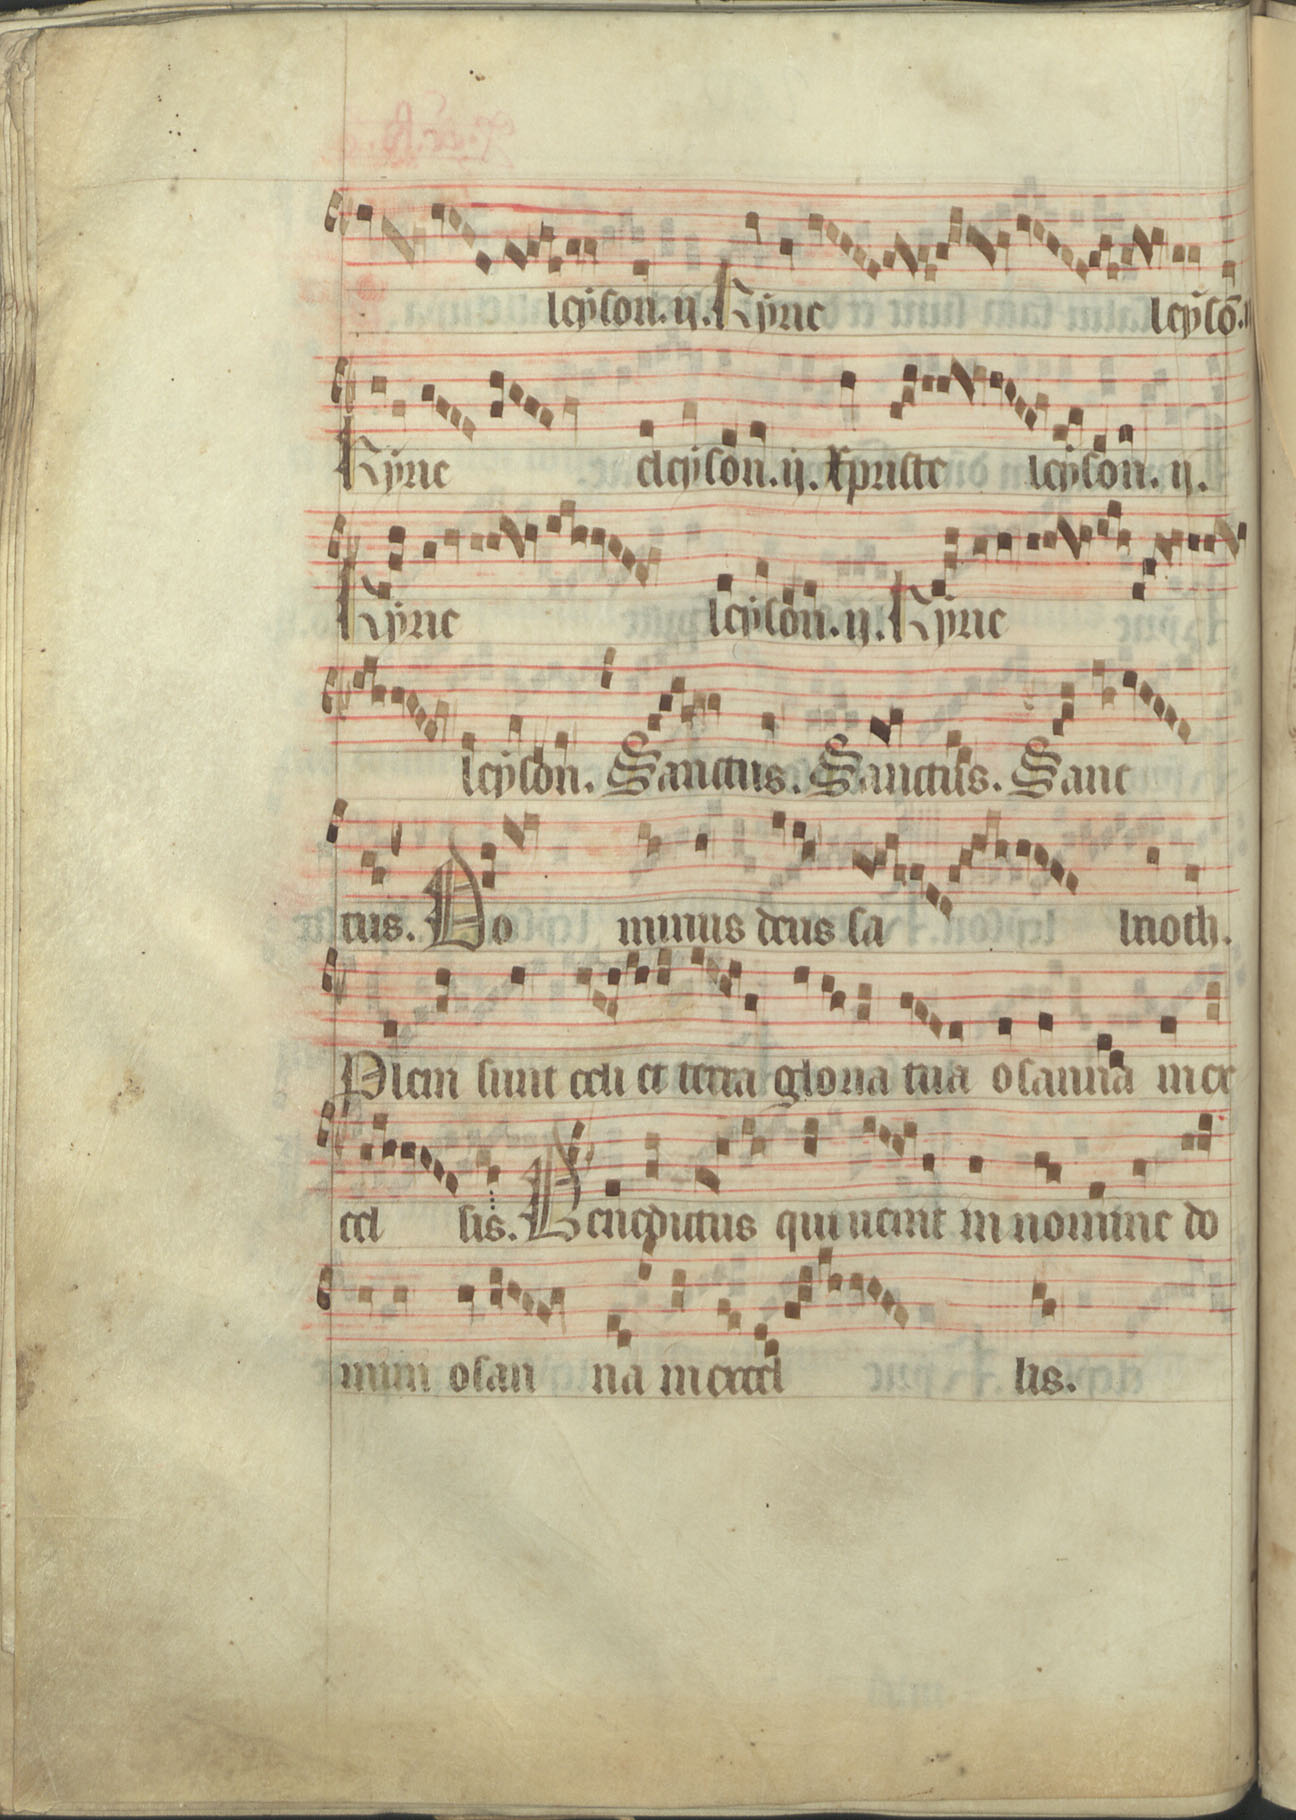 leyson. ij. Kyrie leyso̅. ij
Kyrie eleyson. ij. Xpriste leyson. ij.
Kyrie leyson. ij. Kyrie
leyson. Sanctus. Sanctus. Sanc
tus. Do minus deus sa baoth.
Pleni sunt celi et terra gloria tua osanna in ex
cel sis. Benedictus qui uenit in nomine do
mini osan na in excel sis.